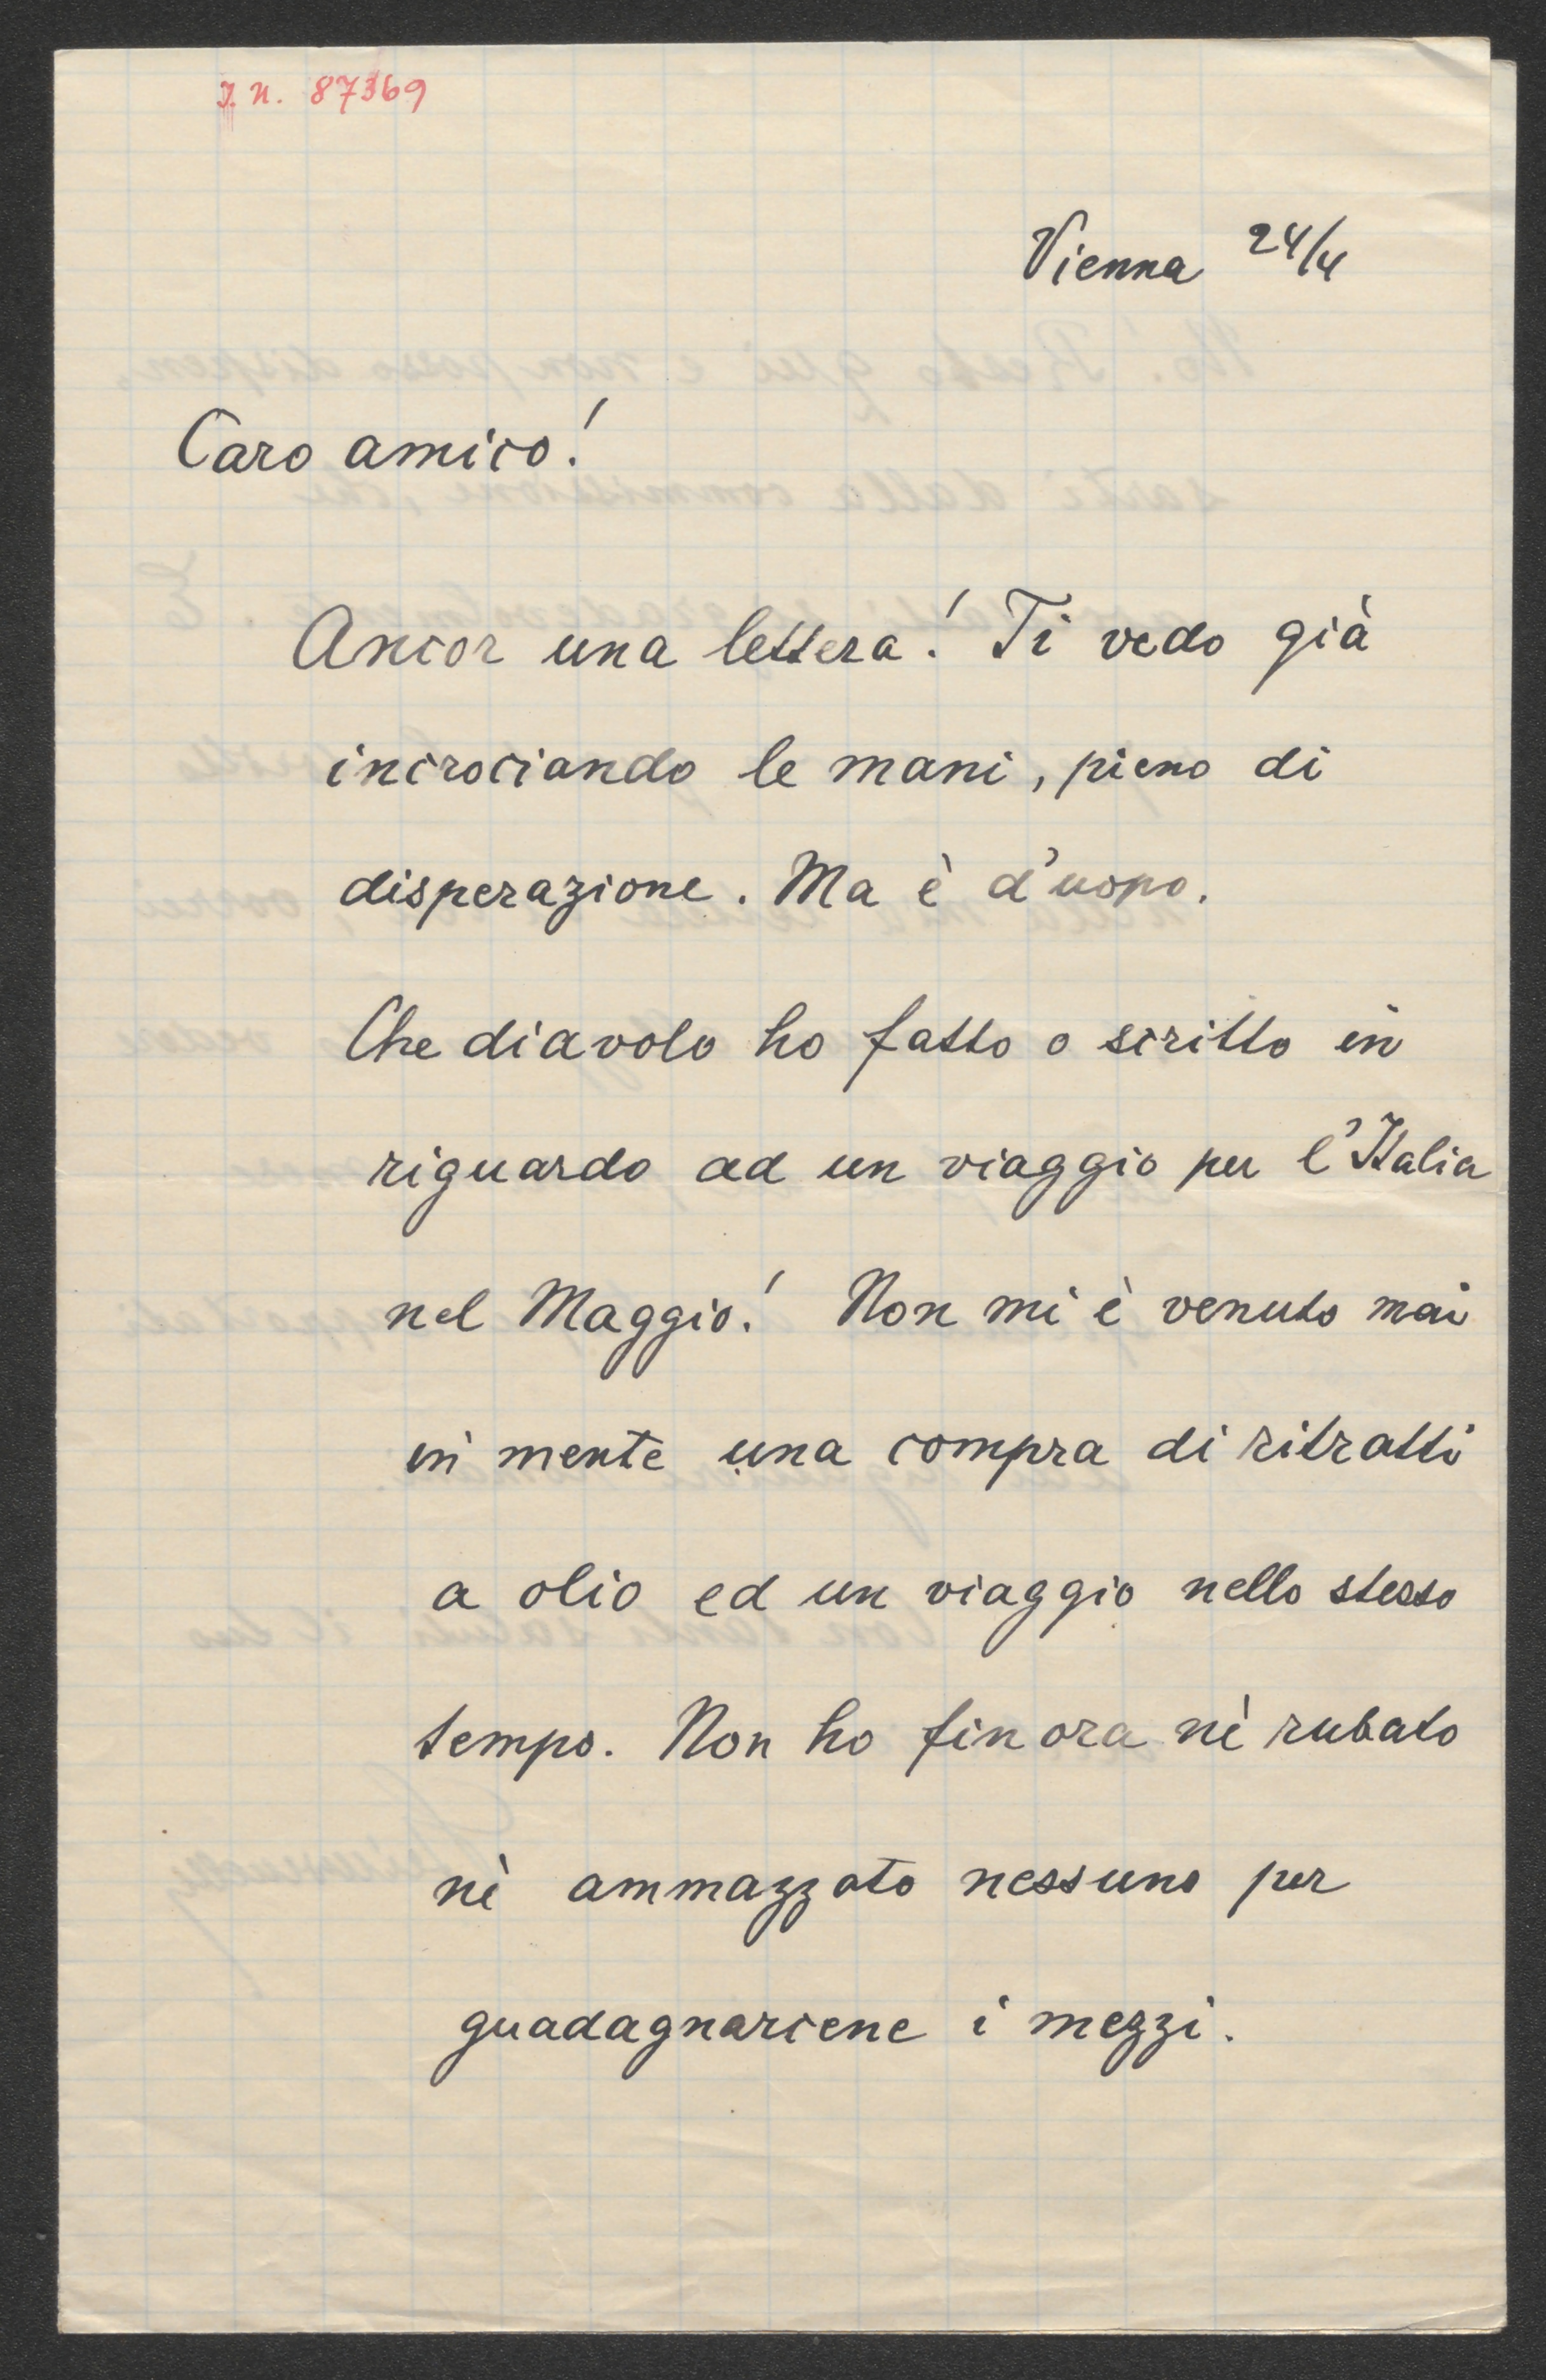 J. N. 87369
Vienna 24/4
Caro amico!
Ancor una lettera! Ti vedo già
incrociando le mani, pieno di
disperazione. Ma è d'uopo.
Che diavolo ho fatto o scritto in
riguardo ad un viaggio per l'Italia
nel Maggio! Non mi è venuto mai
in mente una compra di ritratti
a olio ed un viaggio nello stesso
tempo. Non ho finora nè rubato
nè ammazzato nessuno per
guadagnarcene i mezzi.